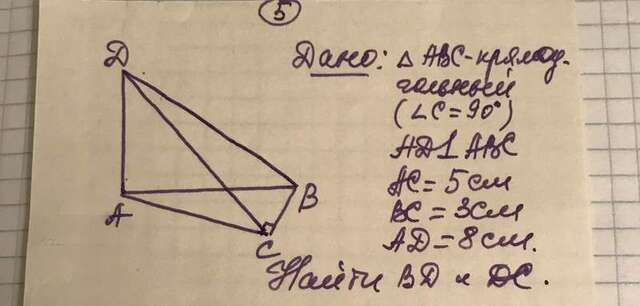 5
Дано: △ ABC - прямоу-
гольный
(∠C = 90°)
AD⊥ABC
AC = 5 см
BC = 3 см
AD = 8 см.
Найти BD и DC.
D
A
B
C